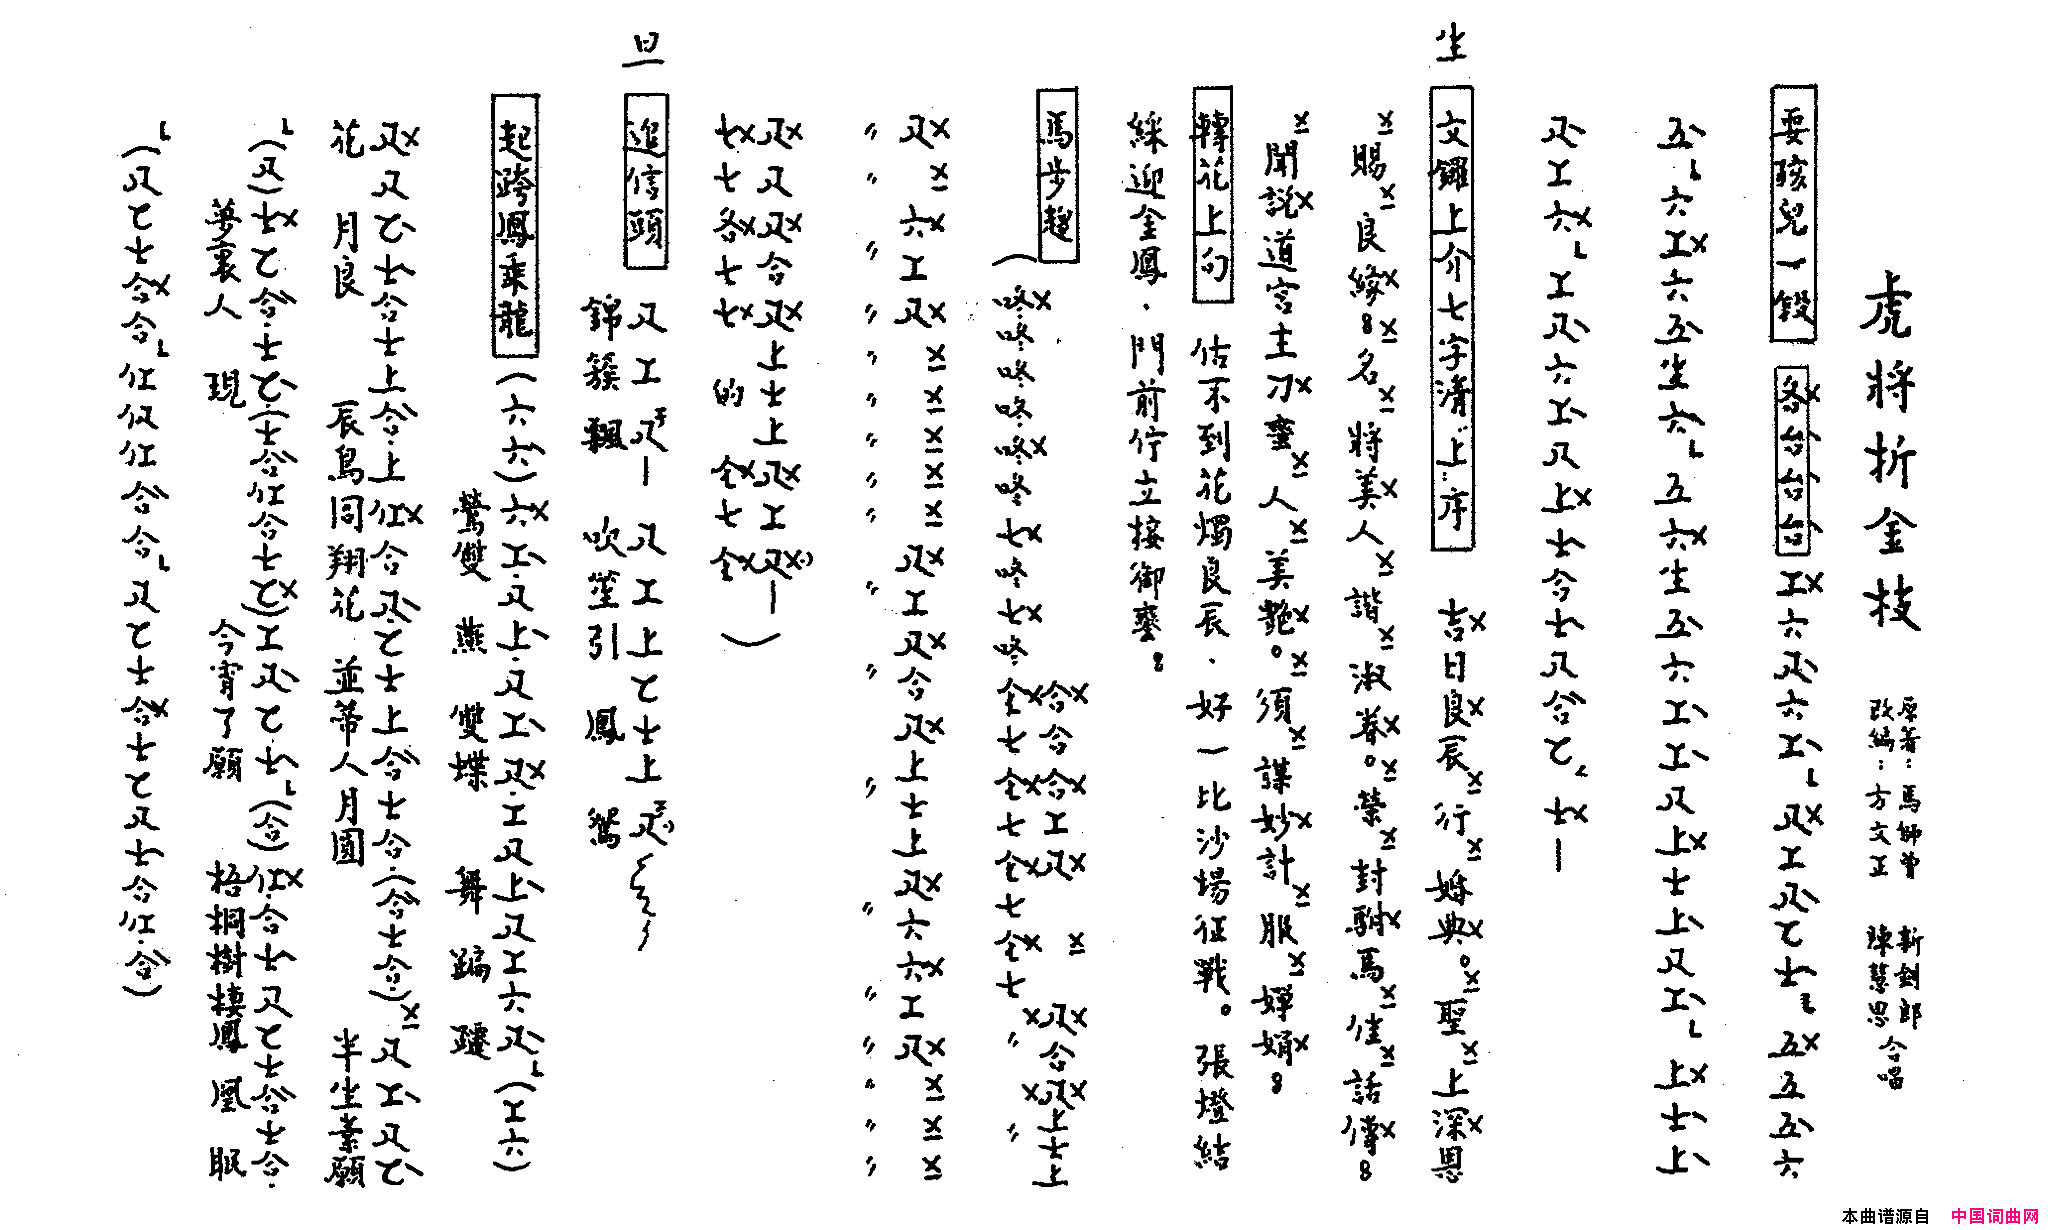 虎將折金枝
原著：馬師曾 新劍郎
改編：方文正 陳慧思 合唱
耍孩兒一段 各台台台 工六尺六工 尺工尺乙士 五五五六
五六工六五生六 五六生五六工工尺上士上尺工 上士上
尺工六工尺六工尺上士合士尺合乙士
生 文鑼上介七字清上序 吉日良辰行婚典。聖上深恩
賜良緣 名將美人諧淑眷。榮封駙馬佳話傳
聞說道宮主刁蠻人美艷。須謀妙計服嬋娟
轉花上句 估不到花燭良辰．好一比沙場征戰。張燈結
綵迎金鳳．門前佇立接御鑾
馬步趕 （咚咚咚咚咚咚七咚七咚仝七仝七仝七仝七
合合合工尺 尺合尺上士上
尺 六工尺 尺工尺合尺上士上尺六六工尺
尺尺尺合尺上士上尺工尺）
七七各七七 的 仝七仝
旦 追信頭 尺工尺 尺工上乙士上尺
錦簇飄 吹笙引鳳鴛
起跨鳳乘龍 （六六）六工尺上尺工尺工尺上尺工六尺（工六）
鶯雙燕雙蝶舞蹁躚
尺尺乙士合士上合上仜合尺乙士上合士合（合士合）尺工尺乙
花月良辰鳥同翔花並蒂人月圓 半坐素願
（尺）士乙合士乙（士合仜合士乙）工尺乙士（合）仜合士尺乙士合士合
夢裏人現 今宵了願 梧桐樹棲鳳凰眠
（尺乙士合合仜伬仜合合尺乙士合士乙尺士合仜合）
本曲谱源自 中国词曲网